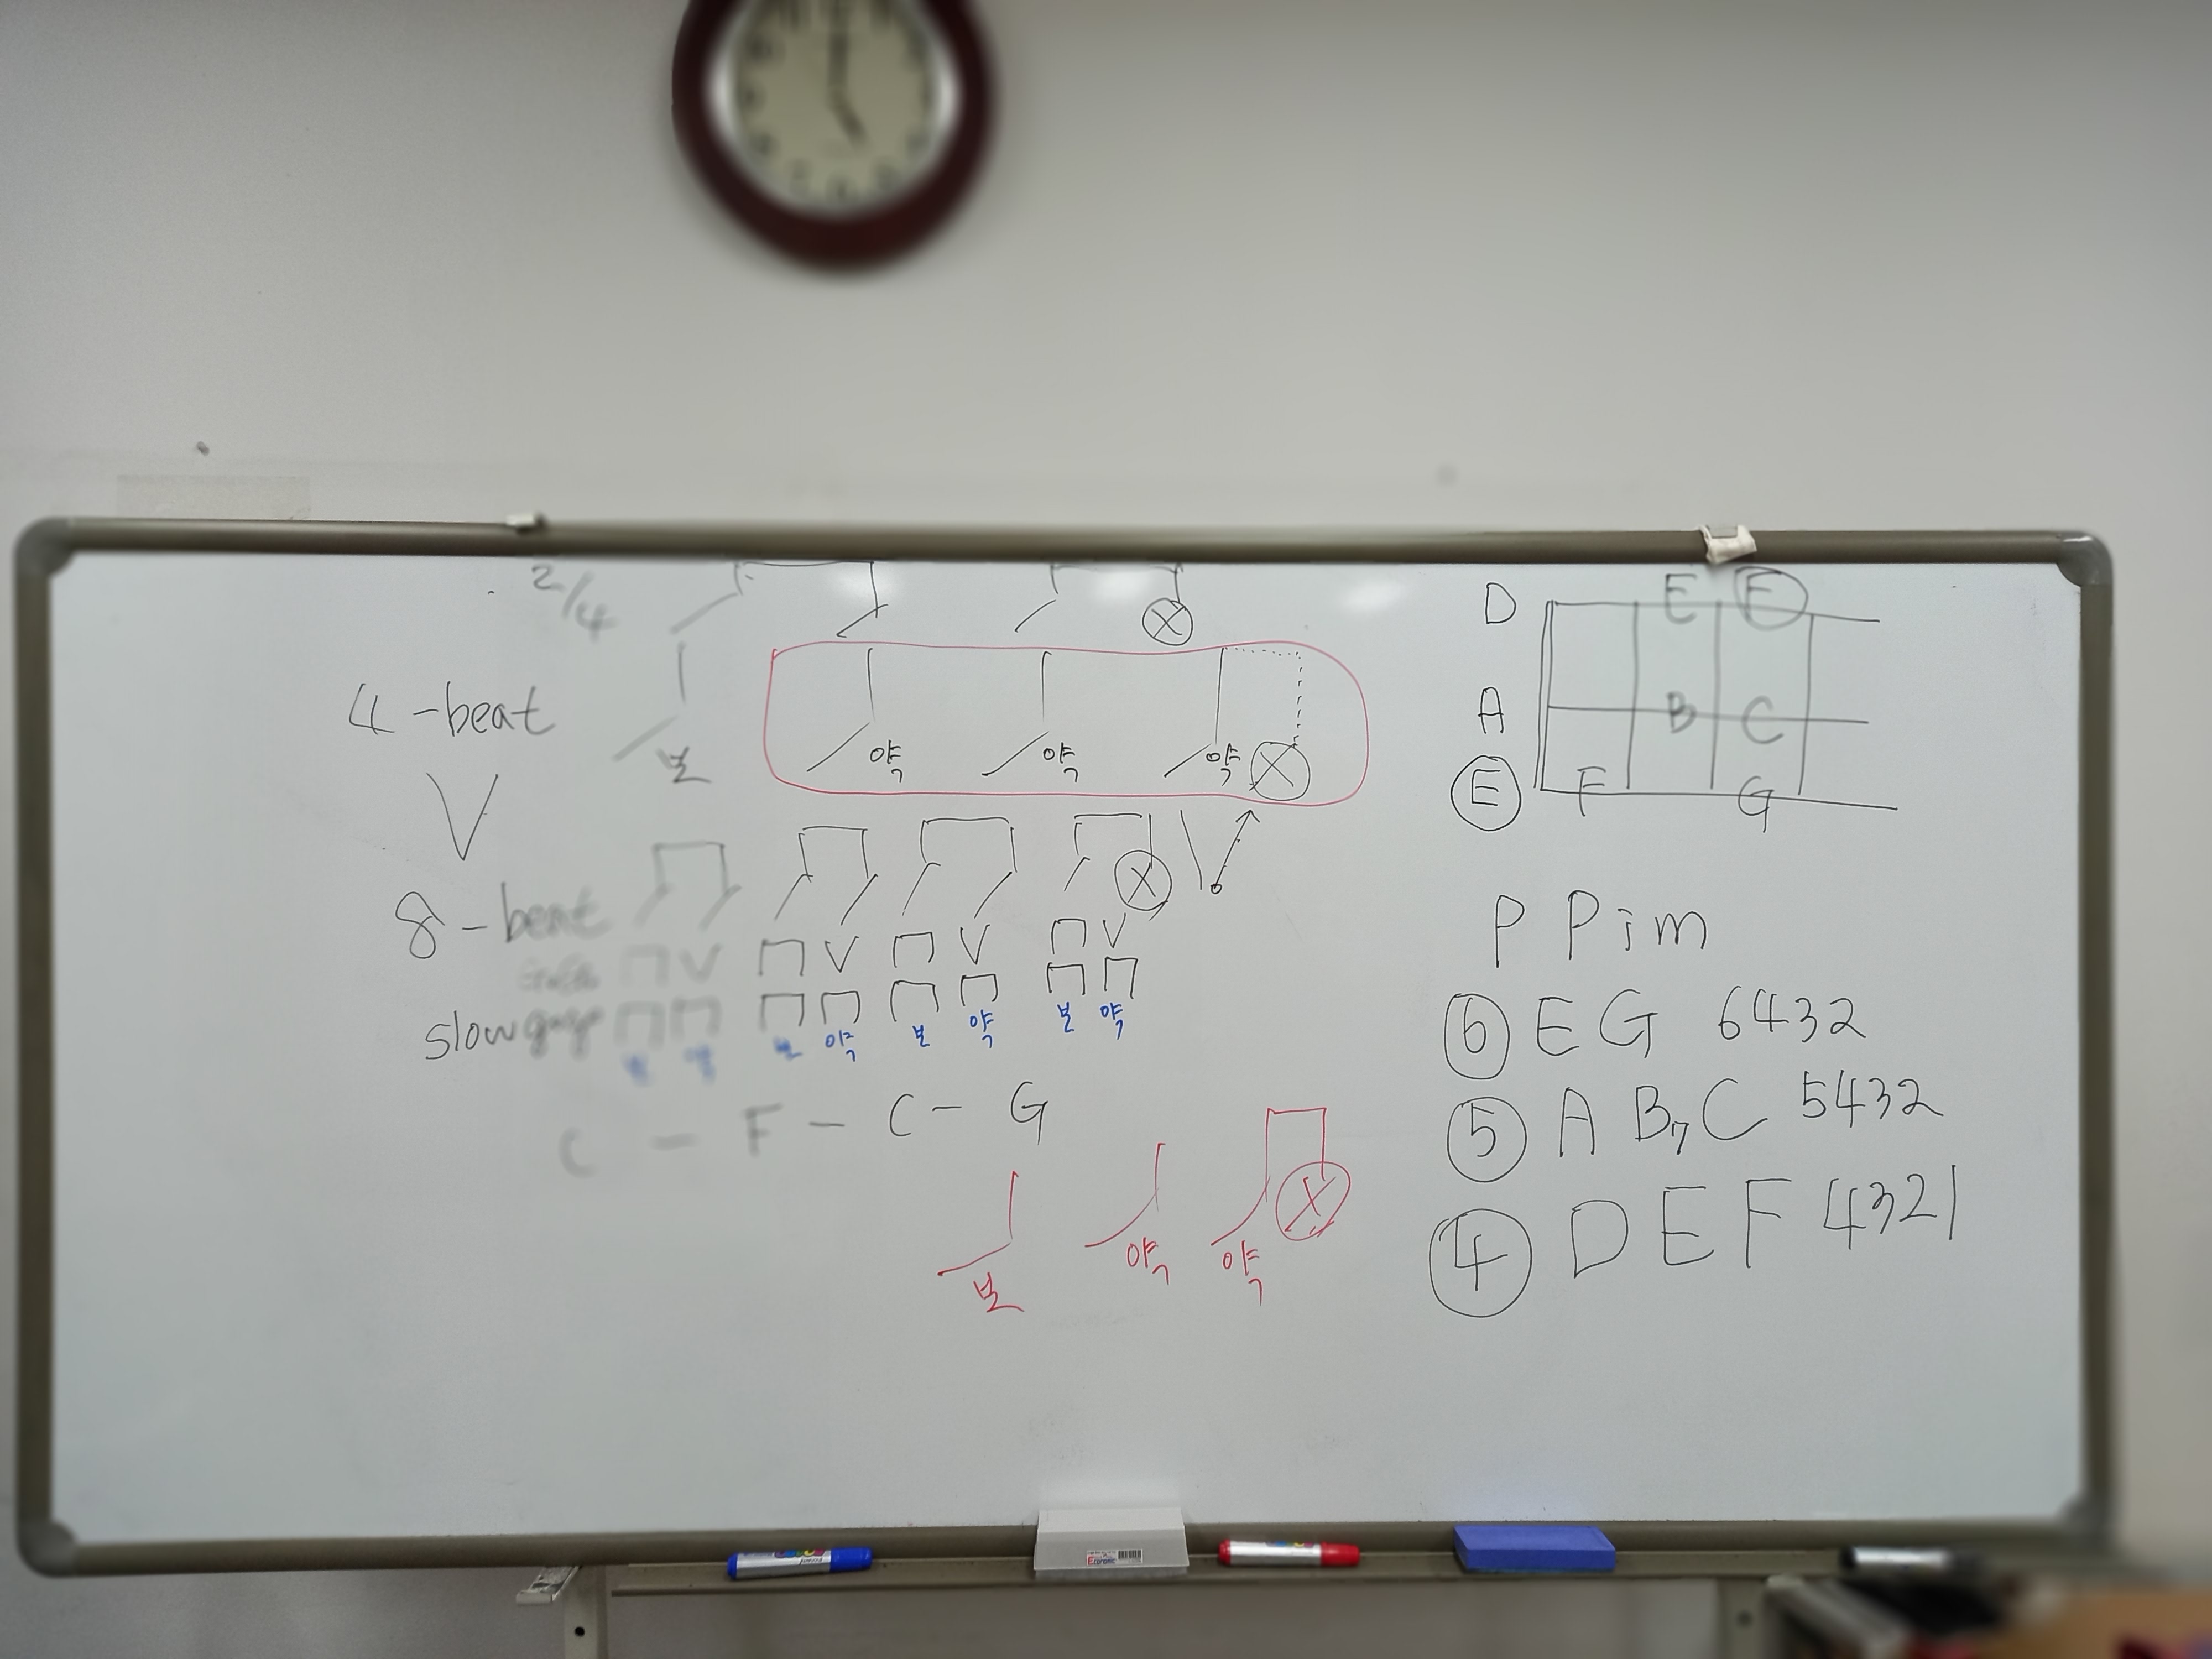 2/4
4-beat
본 약 약 약
V
8-beat
slow gogo
본 약 본 약 본 약
C - F - C - G
본 약 약
D E F
A B C
E F G
P P i m
⑥ E G 6432
⑤ A B7 C 5432
④ D E F 4321